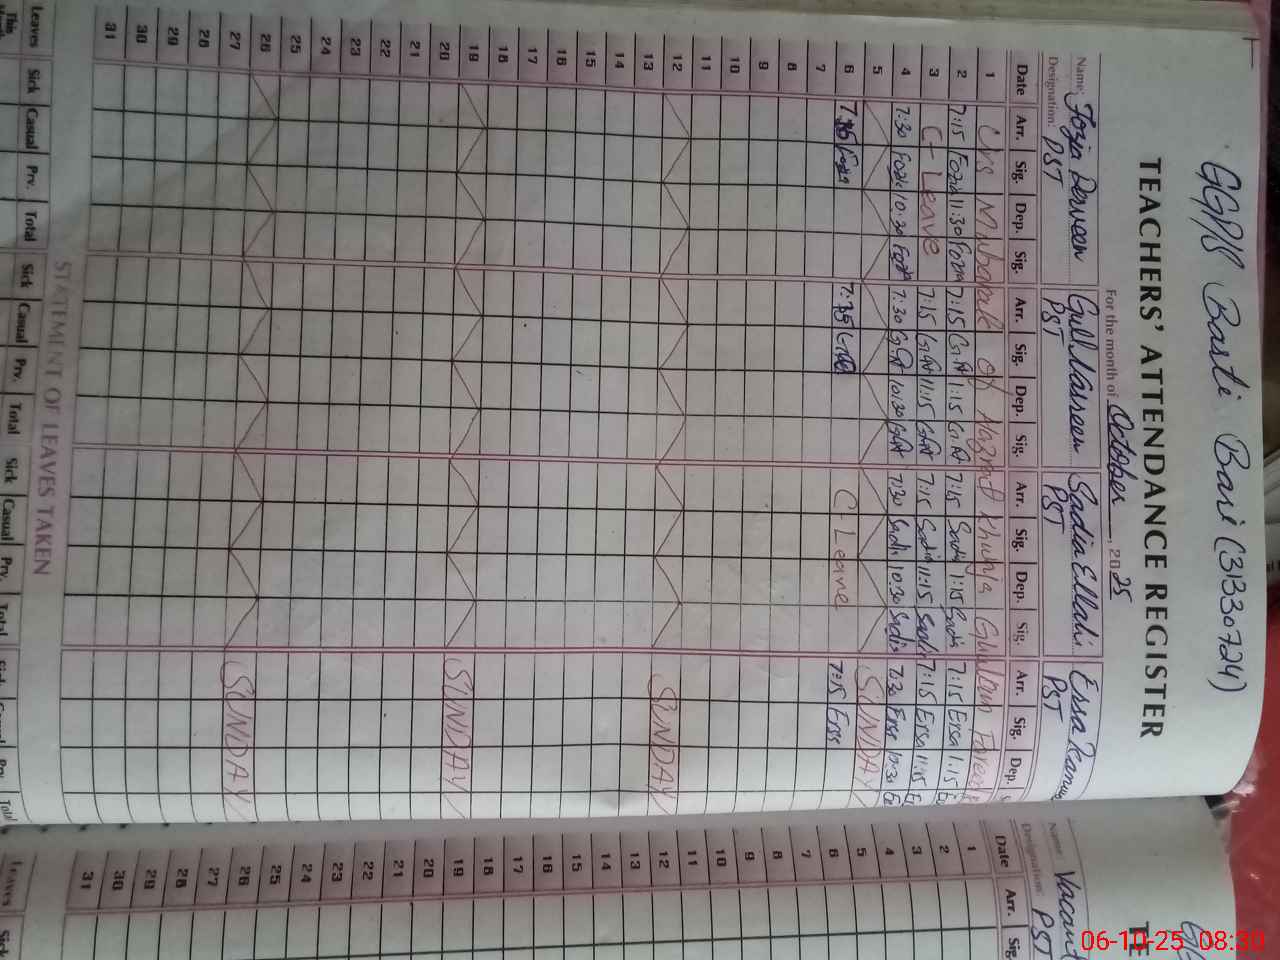 GGPS Basti Bari (31330724)
TEACHERS' ATTENDANCE REGISTER
For the month of October, 2025
Name: Fozia Perveen Gull Nasreen Sadia Ellahi Erssa Kanwal
Designation: PST PST PST PST
Date Arr. Sig. Dep. Sig. Arr. Sig. Dep. Sig. Arr. Sig. Dep. Sig. Arr. Sig. Dep. S
1 Urs Mubarak of Hazrat Khuwja Ghulam Fareed
2 7:15 Fozia 11:30 Fozia 7:15 G.N 1:15 G.N 7:15 Sadia 1:15 Sadia 7:15 Erssa 1:15
3 C-Leave 7:15 G.N 11:15 G.N 7:15 Sadia 11:15 Sadia 7:15 Erssa 11:15
4 7:30 Fozia 10:30 Fozia 7:30 G.N 10:30 G.N 7:30 Sadia 10:30 Sadia 7:30 Erssa 10:30
5 SUNDAY
6 7:15 Fozia 7:15 C-Leave 7:15 Erss
7
8
9
10
11
12 SUNDAY
13
14
15
16
17
18
19 SUNDAY
20
21
22
23
24
25
26 SUNDAY
27
28
29
30
31
STATEMENT OF LEAVES TAKEN
Leaves Sick Casual Prv. Total Sick Casual Prv. Total Sick Casual Prv. Total Total
This
TE
Name: Vacant
Designation: PST
Date Arr. Sig.
1
2
3
4
5
6
7
8
9
10
11
12
13
14
15
16
17
18
19
20
21
22
23
24
25
26
27
28
29
30
31
Leaves Sick
06-10-25 08:30